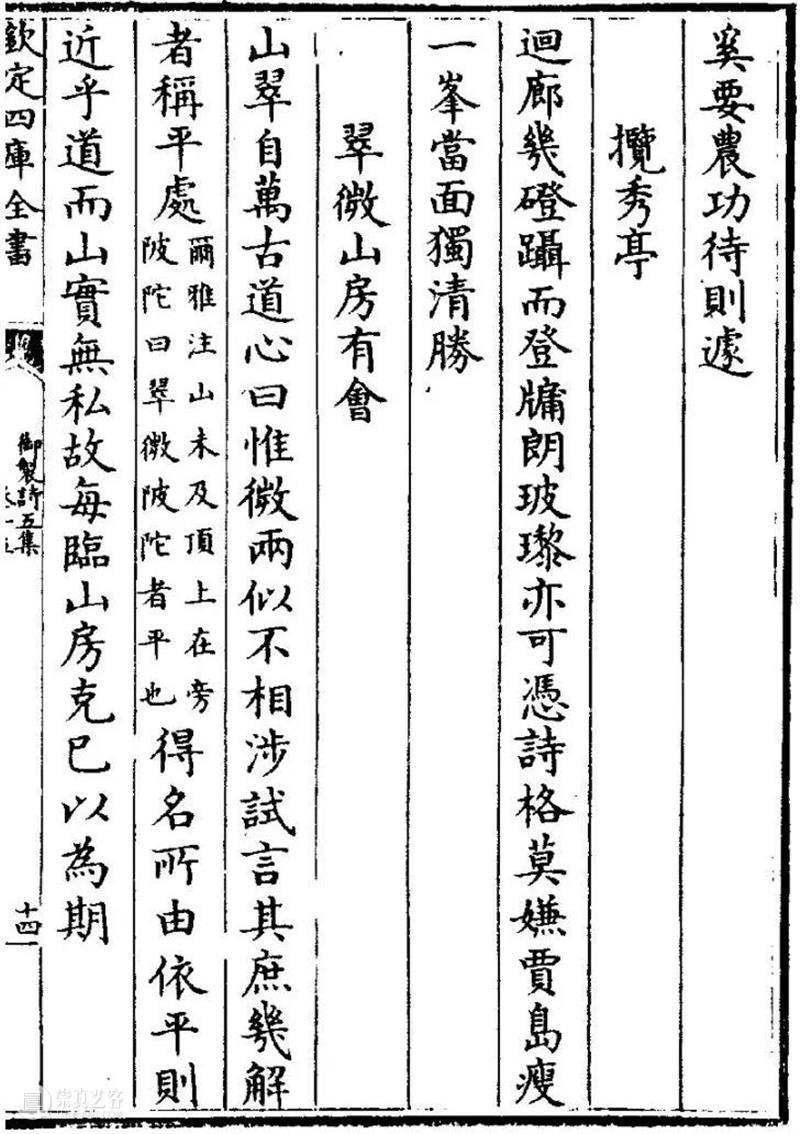 奚要農功待則遽
攬秀亭
迴廊幾磴躡而登牗朗玻瓈亦可憑詩格莫嫌賈島瘦
一峯當面獨清勝
翠微山房有會
山翠自萬古道心曰惟微兩似不相涉試言其庶幾解
者稱平處爾雅注山未及頂上在旁陂陀曰翠微陂陀者平也得名所由依平則
近乎道而山實無私故每臨山房克已以為期
欽定四庫全書
御製詩五集
十四